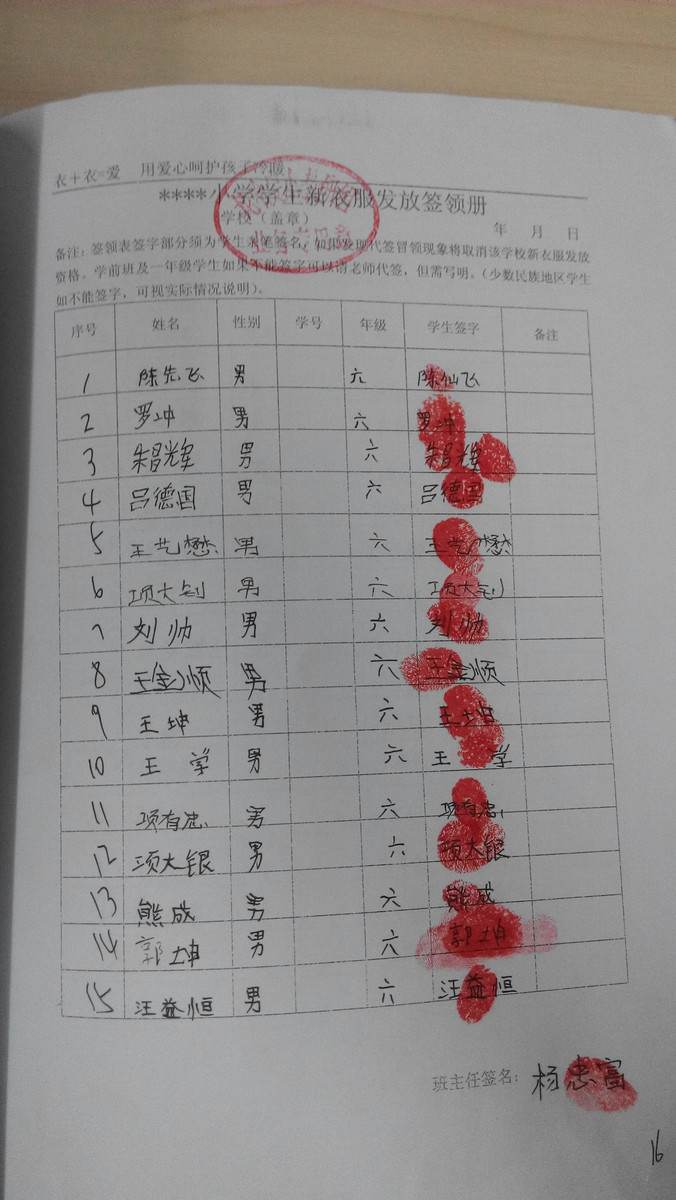 衣+衣=爱 用爱心呵护孩子冷暖
****小学学生新衣服发放签领册
学校（盖章） 年 月 日
备注：签领表签字部分须为学生亲笔签名，如果发现代签冒领现象将取消该学校新衣服发放
资格。学前班及一年级学生如果不能签字可以请老师代签，但需写明。（少数民族地区学生
如不能签字，可视实际情况说明）。
序号 姓名 性别 学号 年级 学生签字 备注
1 陈先飞 男 六 陈仙飞
2 罗冲 男 六 罗冲
3 朱昌辉 男 六 朱昌辉
4 吕德国 男 六 吕德国
5 王艺懋 男 六 王艺懋
6 项大钊 男 六 项大钊
7 刘帅 男 六 刘帅
8 王金顺 男 六 王金顺
9 王坤 男 六 王坤
10 王学 男 六 王学
11 项有忠 男 六 项有忠
12 项大银 男 六 项大银
13 熊成 男 六 熊成
14 郭坤 男 六 郭坤
15 汪益恒 男 六 汪益恒
班主任签名：杨忠富
16